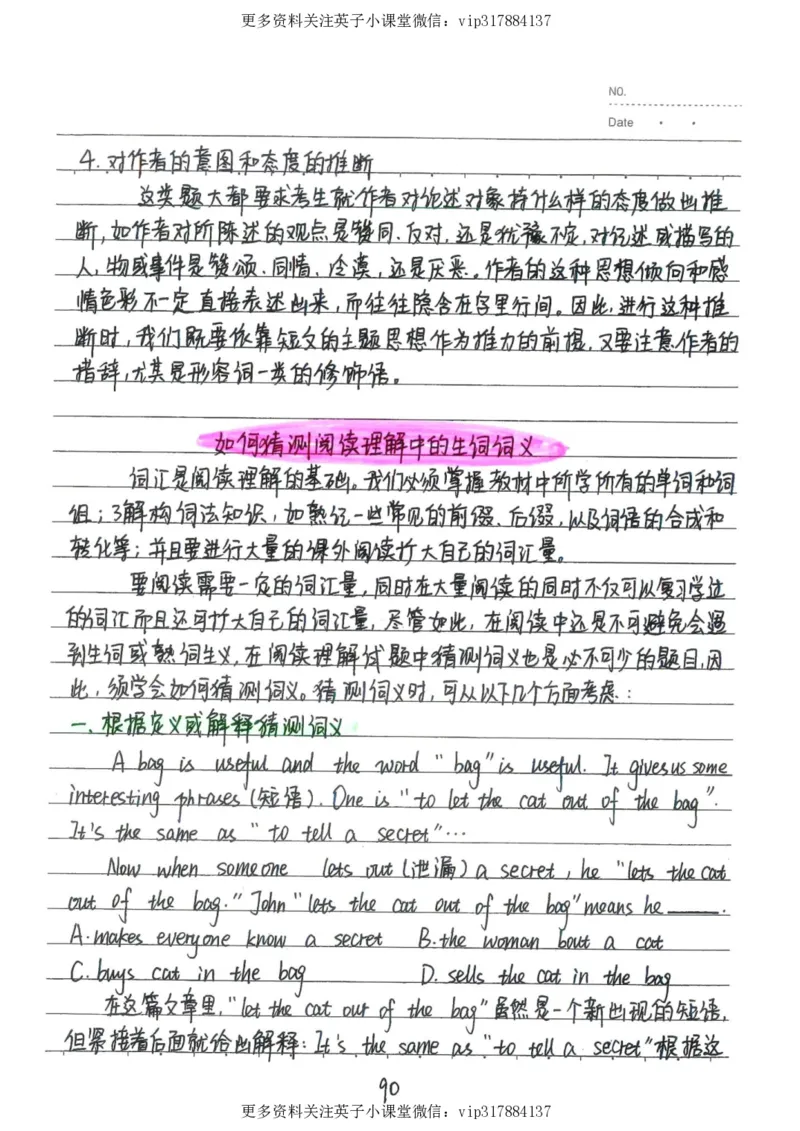 更多资料关注英子小课堂微信：vip317884137
NO.
Date
4. 对作者的意图和态度的推断
这类题大都要求考生就作者对论述对象持什么样的态度做出推
断，如作者对所陈述的观点是赞同、反对，还是犹豫不定，对记述或描写的
人，物或事件是赞颂、同情、冷漠，还是厌恶。作者的这种思想倾向和感
情色彩不一定直接表述出来，而往往隐含在字里行间。因此，进行这种推
断时，我们既要依靠短文的主题思想作为推力的前提，又要注意作者的
措辞，尤其是形容词一类的修饰语。
如何猜测阅读理解中的生词词义
词汇是阅读理解的基础。我们必须掌握教材中所学所有的单词和词
组；了解构词法知识，如熟记一些常见的前缀、后缀，以及词语的合成和
转化等；并且要进行大量的课外阅读扩大自己的词汇量。
要阅读需要一定的词汇量，同时在大量阅读的同时不仅可以复习学过
的词汇而且还可扩大自己的词汇量，尽管如此，在阅读中还是不可避免会遇
到生词或熟词生义，在阅读理解试题中猜测词义也是必不可少的题目，因
此，须学会如何猜测词义。猜测词义时，可从以下几个方面考虑：
一、根据定义或解释猜测词义
A bag is useful and the word "bag" is useful. It gives us some
interesting phrases (短语). One is "to let the cat out of the bag".
It's the same as "to tell a secret"…
Now when someone lets out (泄漏) a secret, he "lets the cat
out of the bag." John "lets the cat out of the bag" means he ____.
A. makes everyone know a secret B. the woman bout a cat
C. buys cat in the bag D. sells the cat in the bag
在这篇文章里，"let the cat out of the bag" 虽然是一个新出现的短语，
但紧接着后面就给出解释：It's the same as "to tell a secret" 根据这
90
更多资料关注英子小课堂微信：vip317884137